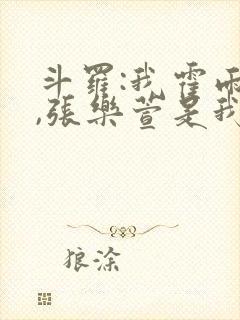 斗罗:我霍雨
,张乐萱是我
狼涂